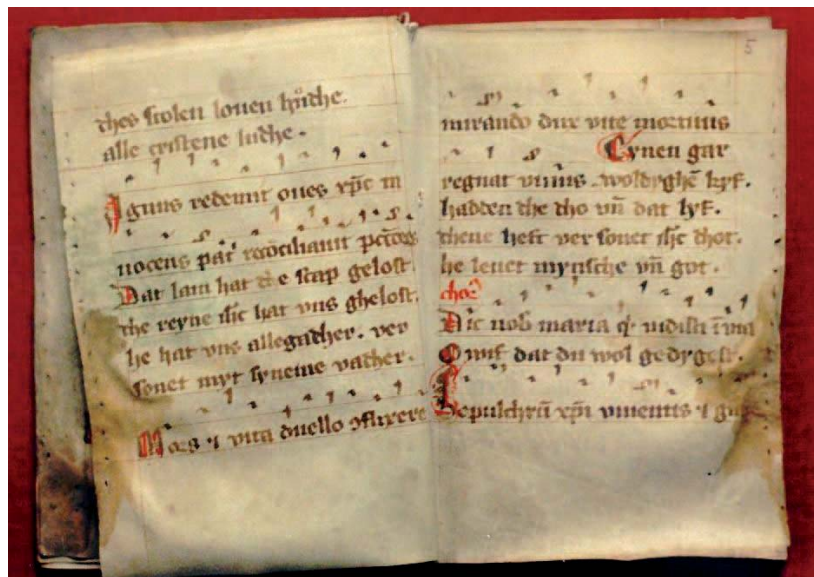 thes ſcolen louen hůthe.
alle criſtene luthe.
Agnus redemit oues xp̄c in
nocens pat᷑ recōciliauit pcc̄oꝝes
Dat lam hat the ſcap geloſt.
the reyne ih̄c hat vns gheloſt.
he hat vns allegadher. ver
ſonet myt ſyneme vadher.
Mors ⁊ vita duello ꝯflixere
5
mirando dux vite mortuus
Eynen gar
regnat viuus. woldyghē kyf.
hadden the tho vn̄ dat lyf.
thene heft ver ſonet ih̄c thot.
he leuet mynſche vn̄ got.
Dic nob maria q̇ vidiſti ī via
O wif dat du wol gedygeſt.
Sepulchrū xp̄i viuentis ⁊